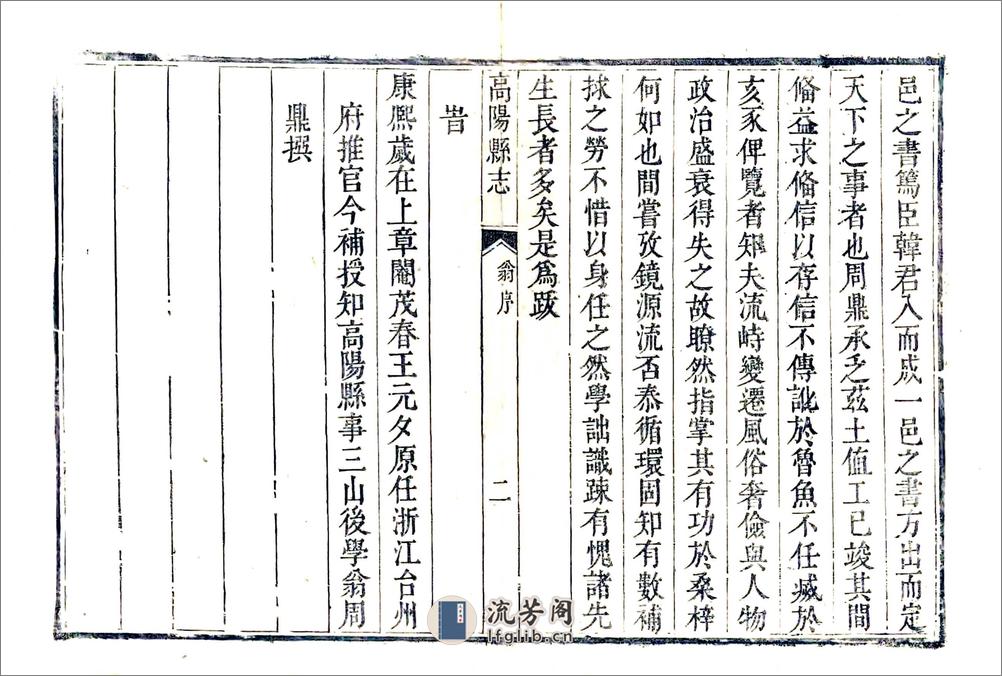 邑之書篤臣韓君入而成一邑之書方出而定
天下之事者也周鼎承乏茲土值工已竣其間
俻益求俻信以存信不傳訛於魯魚不任臧於
亥豕俾覽者知夫流峙變遷風俗奢儉與人物
政治盛衰得失之故瞭然指掌其有功於桑梓
何如也間嘗攷鏡源流否泰循環固知有數補
捄之勞不惜以身任之然學詘識踈有愧諸先
生長者多矣是爲跋
高陽縣志
翁序
二
旹
康熈歲在上章閹茂春王元夕原任浙江台州
府推官今補授知高陽縣事三山後學翁周
鼎撰
流芳阁
lfglib.cn